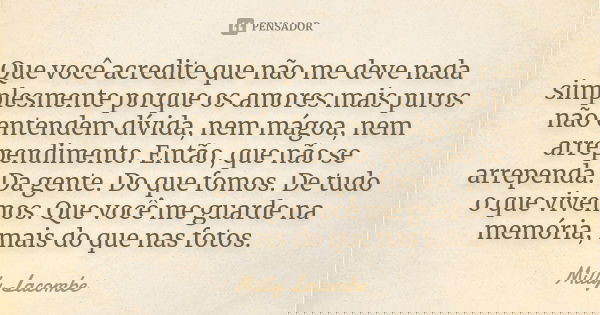 PENSADOR
Que você acredite que não me deve nada
simplesmente porque os amores mais puros
não entendem dívida, nem mágoa, nem
arrependimento. Então, que não se
arrependa. Da gente. Do que fomos. De tudo
o que vivemos. Que você me guarde na
memória, mais do que nas fotos.
Milly Lacombe